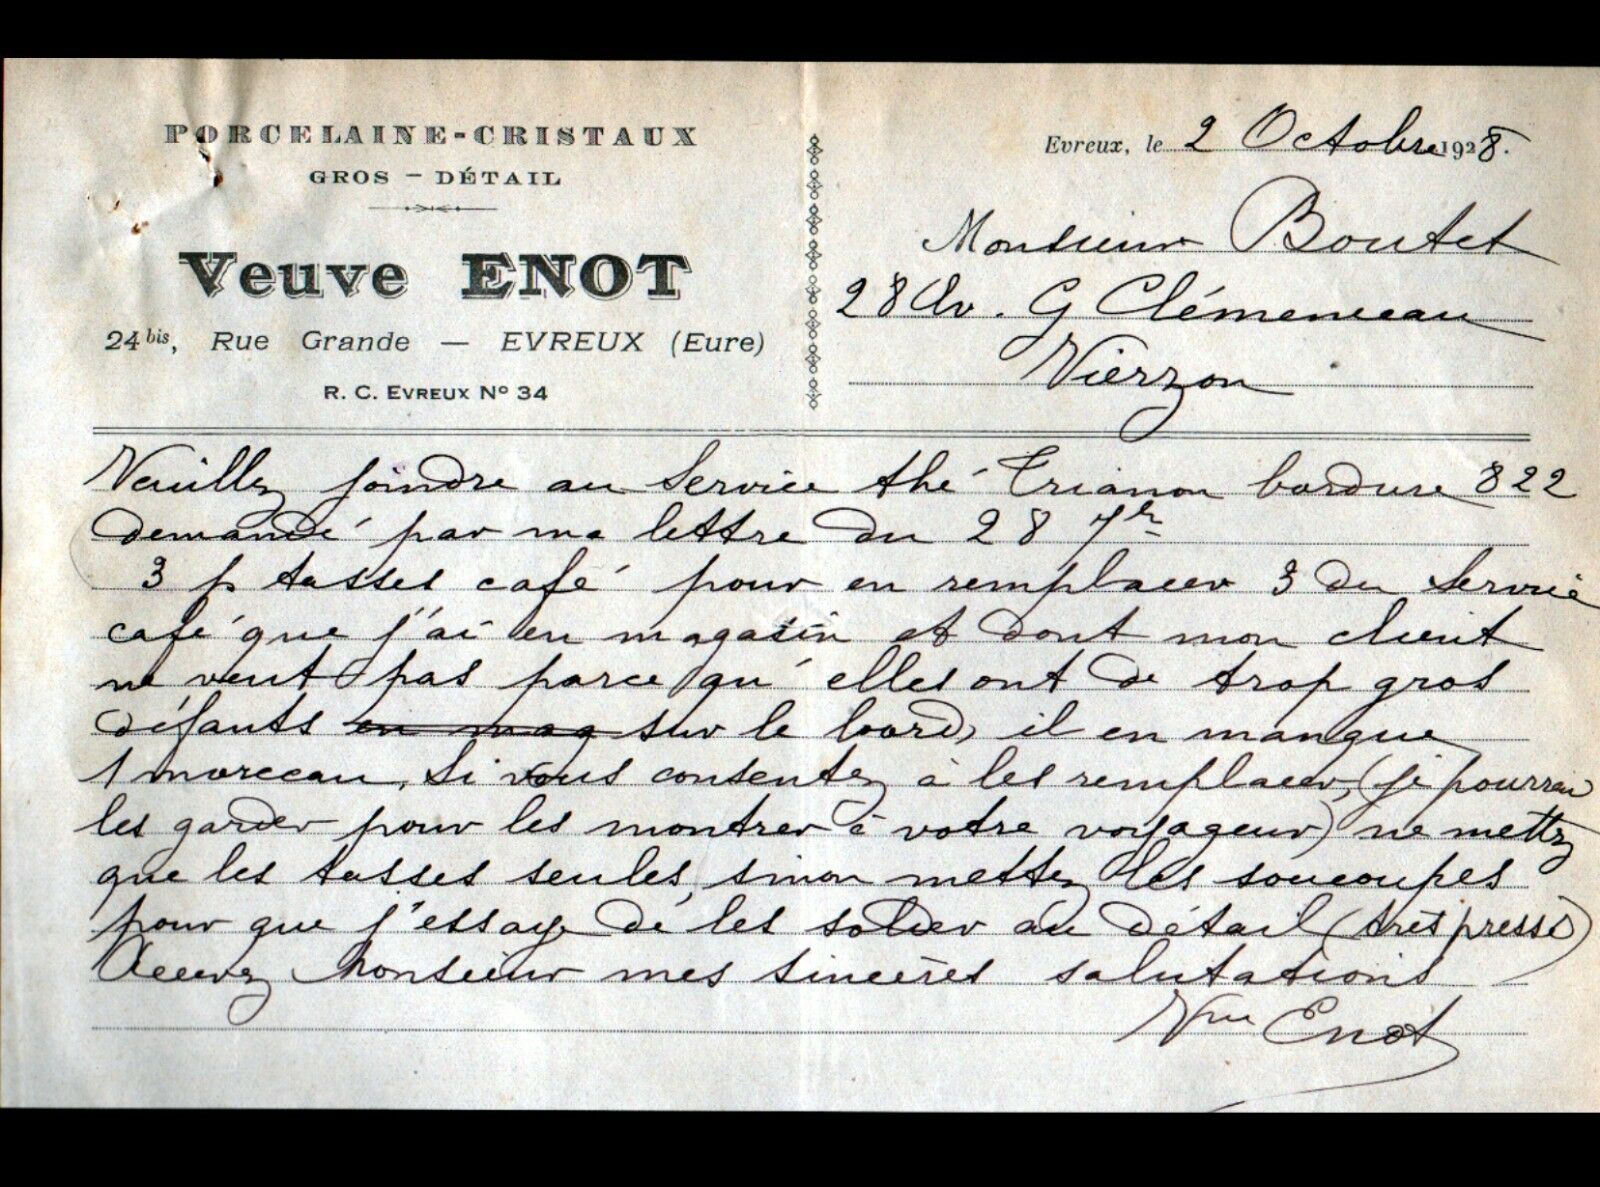 PORCELAINE-CRISTAUX
GROS - DÉTAIL
Veuve ENOT
24 bis, Rue Grande — EVREUX (Eure)
R. C. EVREUX N° 34
Evreux, le 2 Octobre 1928.
Monsieur Boutet
28 Av. G Clémenceau
Vierzon
Veuillez joindre au Service thé Trianon bordure 822
demandé par ma lettre du 28 7bre
3 p tasses café pour en remplacer 3 du Service
café que j'ai en magasin et dont mon client
ne veut pas parce qu'elles ont de trop gros
défauts en mag sur le bord, il en manque
1 morceau, si vous consentez à les remplacer, (je pourrai
les garder pour les montrer à votre voyageur) ne mettez
que les tasses seules, sinon mettez les soucoupes
pour que j'essaye de les solder au détail (très pressé)
Recevez Monsieur mes sincères salutations
Vve Enot